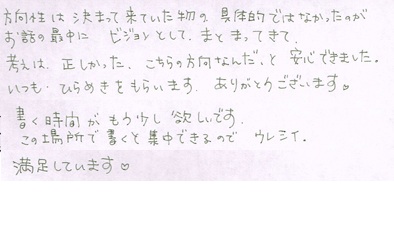 方向性は決まって来ていた物の具体的ではなかったのが
お話の最中に ビジョンとして、まとまってきて、
考えは、正しかった、こちらの方向なんだ、と 安心できました。
いつも ひらめきをもらいます。ありがとうございます♡
書く時間が もう少し 欲しいです。
この場所で書くと集中できるので ウレシイ。
満足しています♡